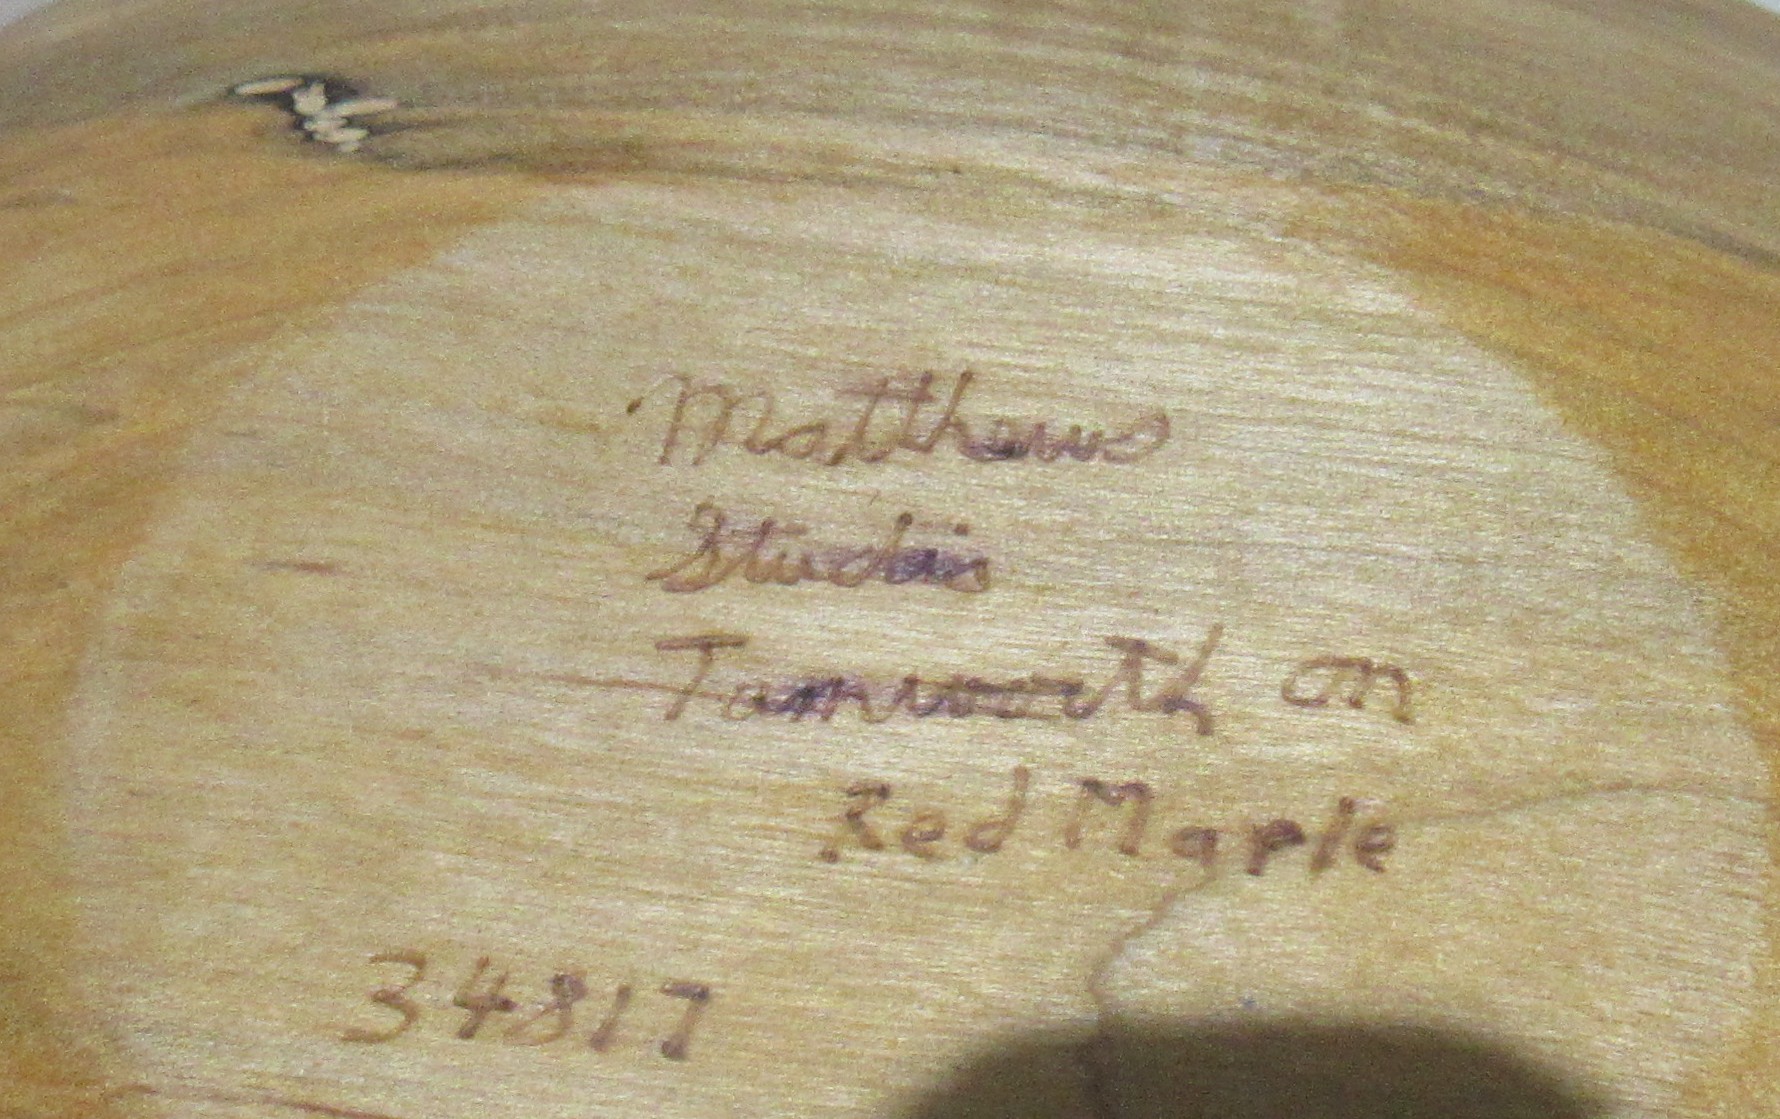 Matthews
Studio
Tamworth ON
Red Maple
34817